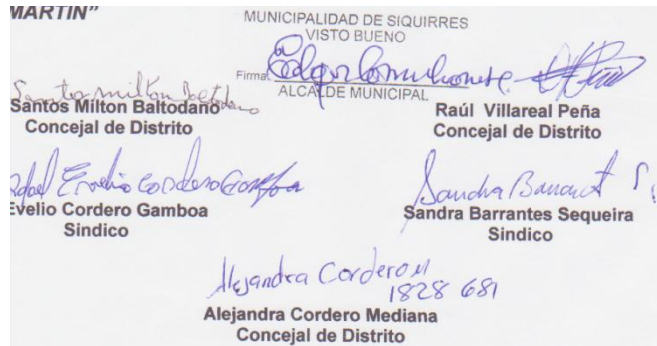 MARTIN”
MUNICIPALIDAD DE SIQUIRRES
VISTO BUENO
Firma:
ALCALDE MUNICIPAL
Santos Milton Baltodano
Santos Milton Baltodano
Concejal de Distrito
Raúl Villareal Peña
Concejal de Distrito
Evelio Cordero Gamboa
Evelio Cordero Gamboa
Sindico
Sandra Barrantes Sequeira
Sindico
Alejandra Cordero M
1828 681
Alejandra Cordero Mediana
Concejal de Distrito